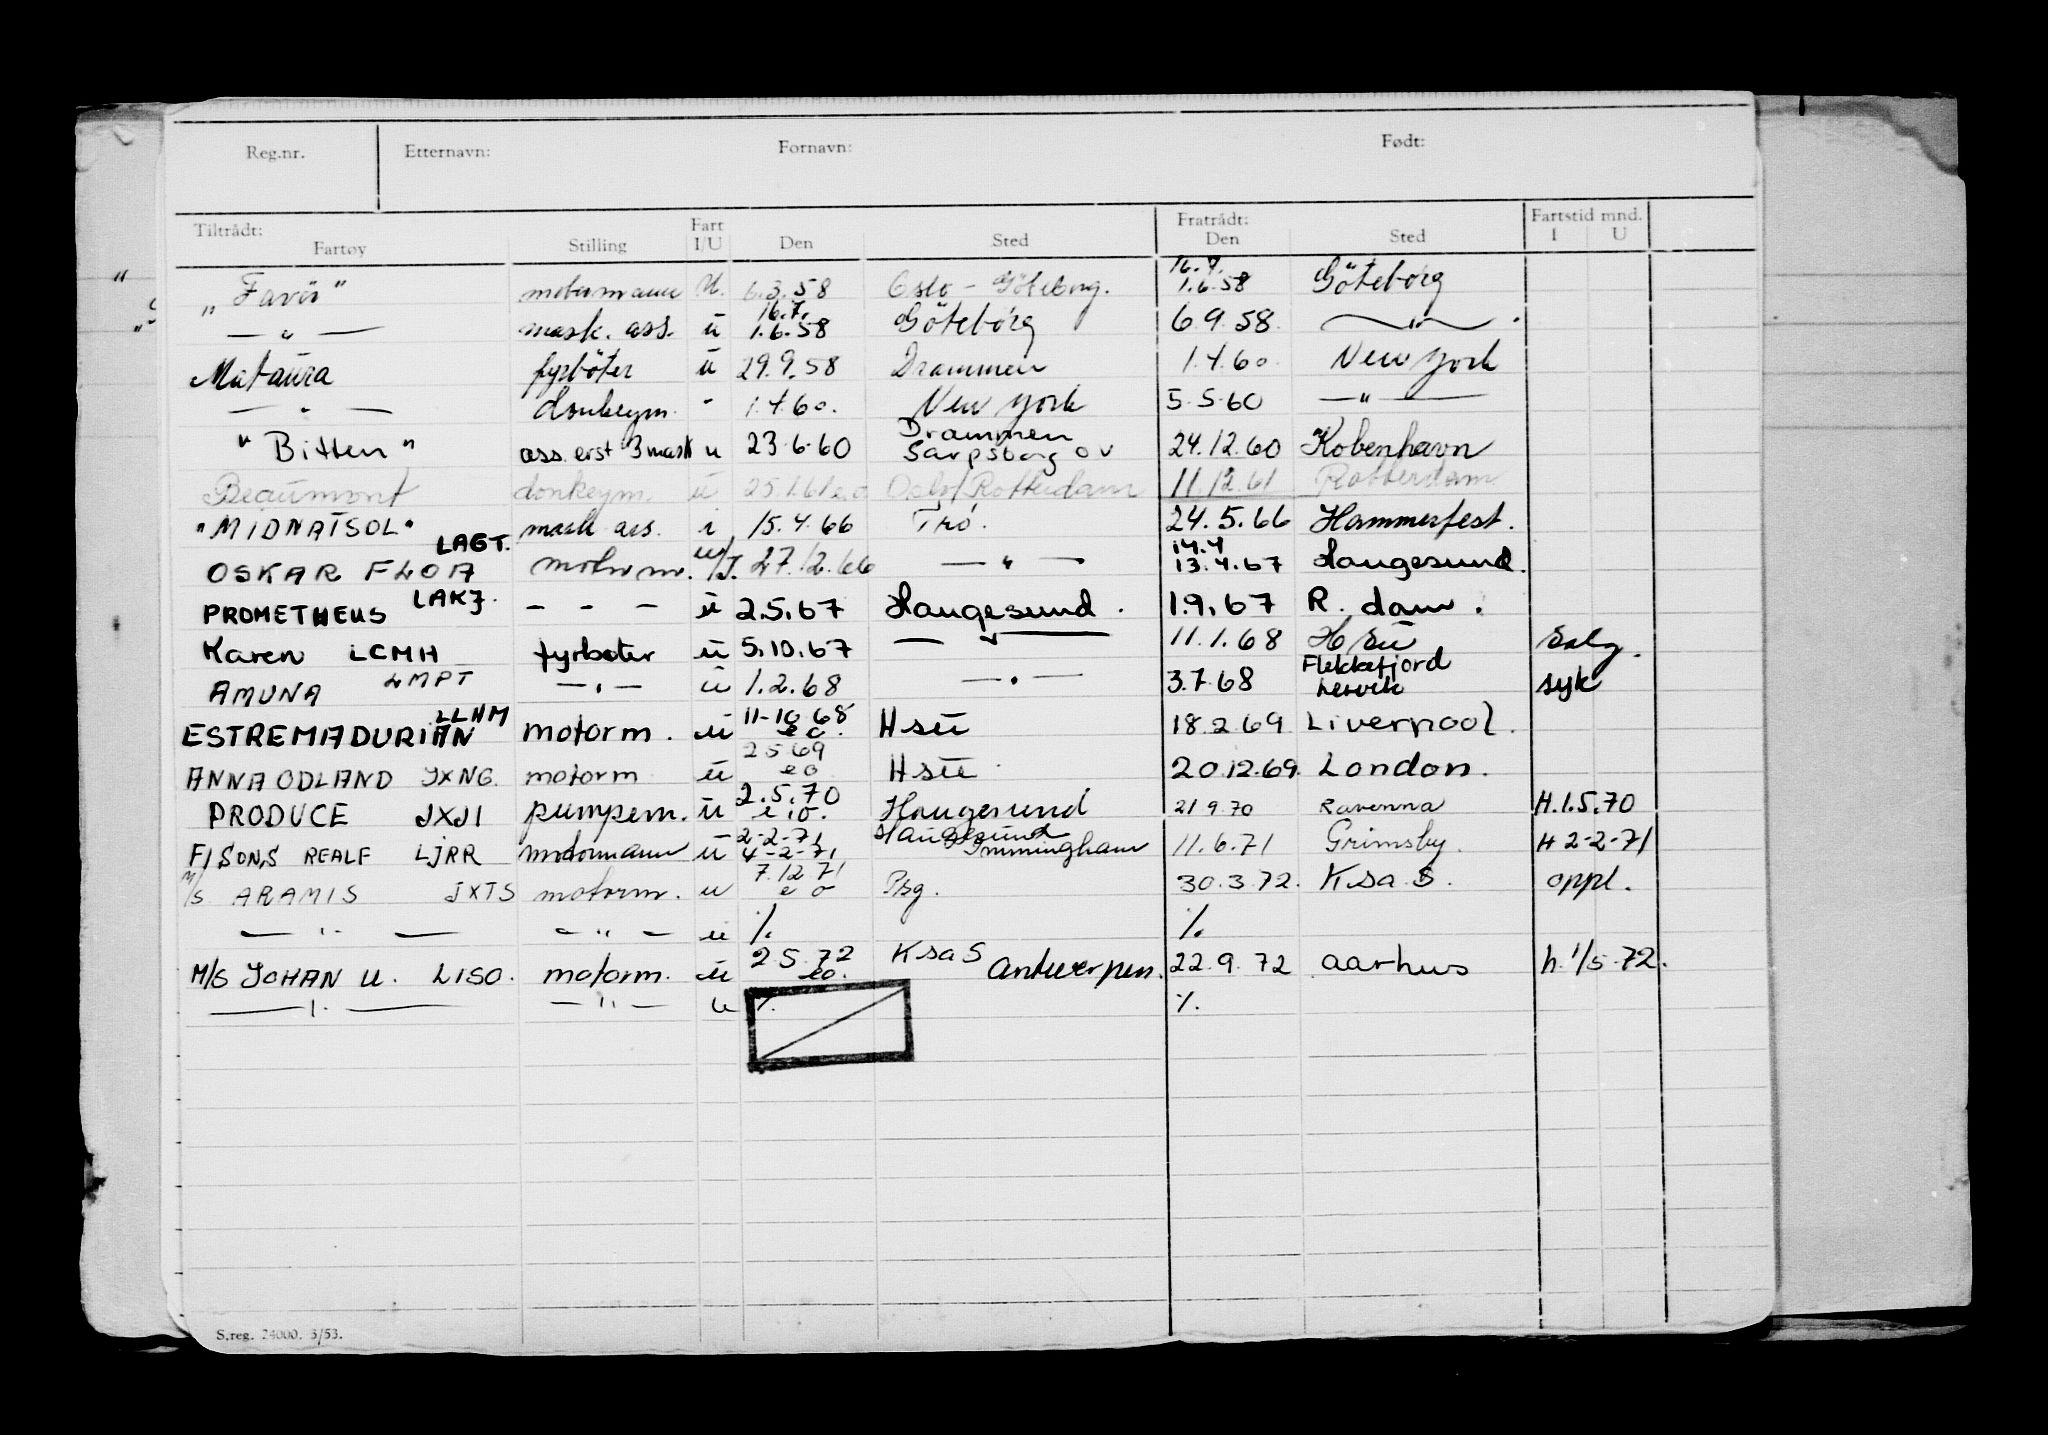 Reg.nr. Etternavn: Fornavn: Født:
Tiltrådt: Fartøy Stilling Fart I/U Den Sted Fratrådt: Den Sted Fartstid mnd. I U
"Favør" motormann U. 6.3.58 Oslo - Göteborg. 16.7. 1.6.58 Göteborg
— " — mask. ass. u 16.7. 1.6.58 Göteborg 6.9.58. — " — .
Mataura fyrböter u 29.9.58 Drammen 1.4.60. New York
— " — donkeym. " 1.4.60. New York 5.5.60 — " —
"Bitten" ass. erst 3 mask u 23.6.60 Drammen Sarpsborg OV 24.12.60 København
Beaumont donkeym. u 25.1.61 e.o Oslo/Rotterdam 11.12.61 Rotterdam
"MIDNATSOL" mask ass. i 15.4.66 Tró. 24.5.66 Hammerfest.
OSKAR FLOA LAGT. motorm. u/I. 27.12.66 — " — 14.4 13.4.67 Haugesund.
PROMETHEUS LAKJ. - - - u 2.5.67 Haugesund. 1.9.67 R. dam.
Karen LCMH fyrboter u 5.10.67 — " — 11.1.68 H su Salg.
AMUNA LMPT — " — u 1.2.68 — " — 3.7.68 Flekkefjord syk
ESTREMADURIAN LLHM motorm. u 11-10.68 eo. Hsu 18.2.69 Liverpool.
ANNA ODLAND JXNG. motorm u 2569 eo Hsu 20.12.69. London.
PRODUCE JXJI pumpem. u 2.5.70 e.o. Haugesund 21.9.70 Ravenna H.1.5.70
F/SONS REALF LJRR motormann u 2-2-71 4-2-71 Haugesund Immingham 11.6.71 Grimsby. H 2-2-71
M/S ARAMIS JXTS motorm. u 7.12 71 e o Psg. 30.3.72. K sa S. oppl.
— " — — " — u ⁒ ⁒
M/S JOHAN U. LISO. motorm. u 2.5.72 eo. K sa S Antwerpen. 22.9.72 aarhus h. 1/5-72.
— " — — " — u ⁒ ⁒
S.reg. 24000. 3/53.